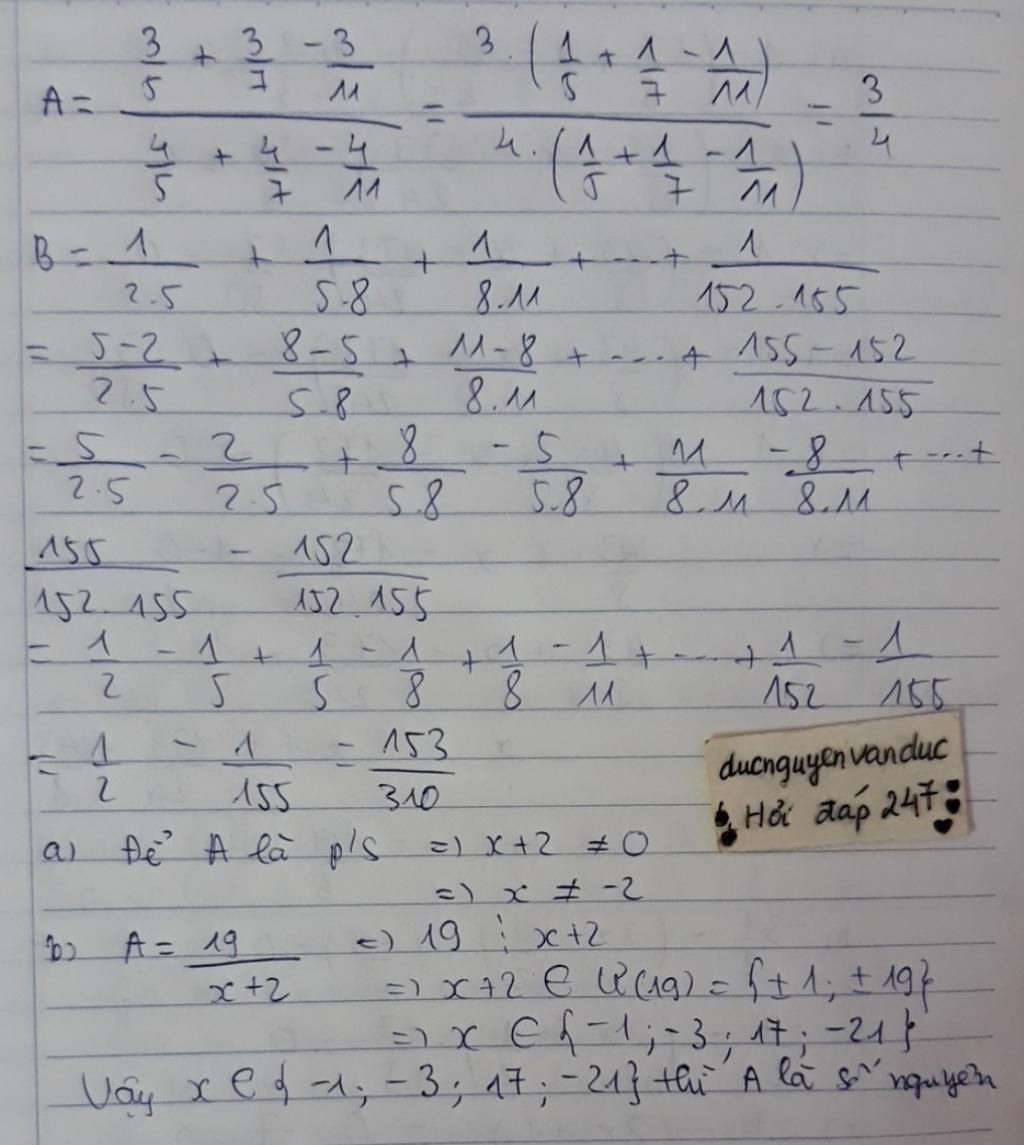 A = (3/5 + 3/7 - 3/11)/(4/5 + 4/7 - 4/11) = 3.(1/5 + 1/7 - 1/11)/4.(1/5 + 1/7 - 1/11) = 3/4
B = 1/2.5 + 1/5.8 + 1/8.11 + ... + 1/152.155
= 5-2/2.5 + 8-5/5.8 + 11-8/8.11 + ... + 155-152/152.155
= 5/2.5 - 2/2.5 + 8/5.8 - 5/5.8 + 11/8.11 - 8/8.11 + ... +
155/152.155 - 152/152.155
= 1/2 - 1/5 + 1/5 - 1/8 + 1/8 - 1/11 + ... + 1/152 - 1/155
= 1/2 - 1/155 = 153/310
ducnguyenvanduc
Hỏi đáp 247
a) Để A là p/s => x+2 ≠ 0
=> x ≠ -2
b) A = 19/x+2 => 19 ⋮ x+2
=> x+2 ∈ Ư(19) = {±1; ±19}
=> x ∈ {-1; -3; 17; -21}
Vậy x ∈ {-1; -3; 17; -21} thì A là số nguyên